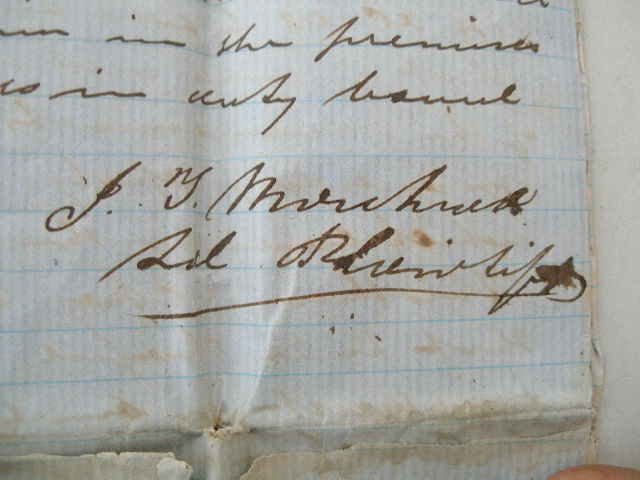 in the premises
as in duty bound
J. T. Morehead
Sol Plaintiff